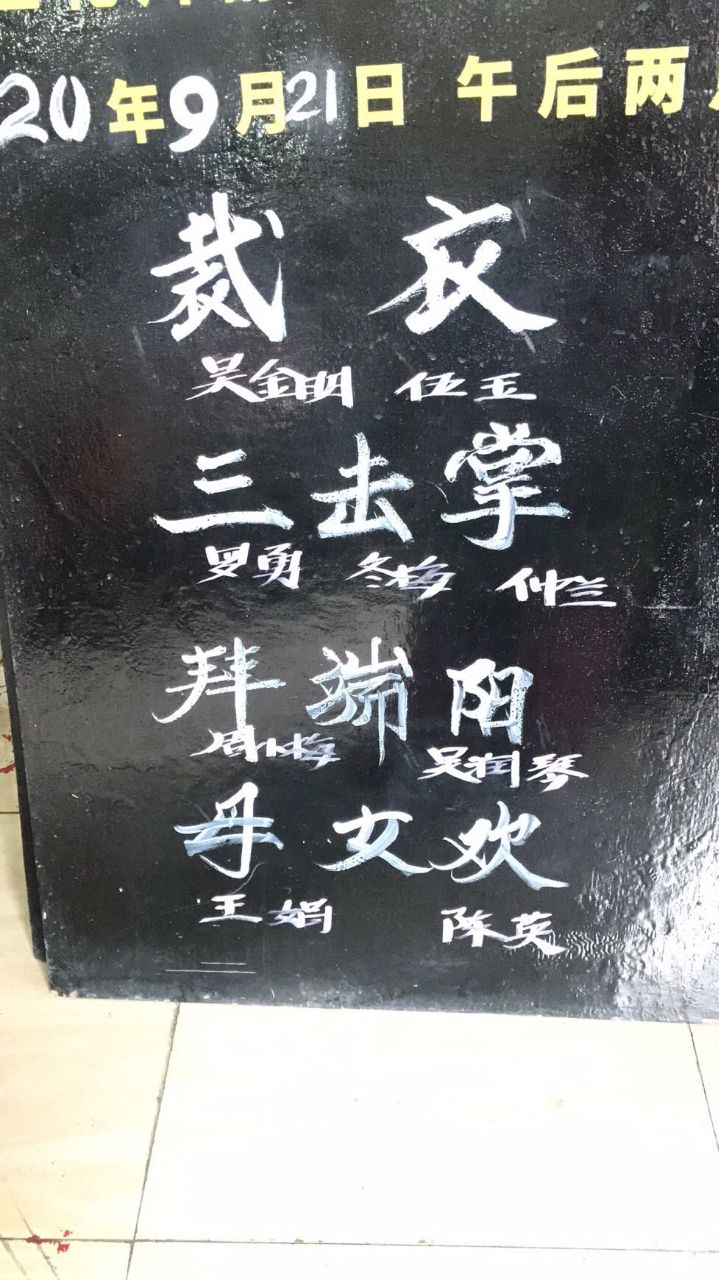 20年9月21日 午后两
裁衣
吴金明 伍玉
三击掌
罗勇 冬梅 仲兰
拜端阳
周小梅 吴润琴
母女欢
王娟 陈英